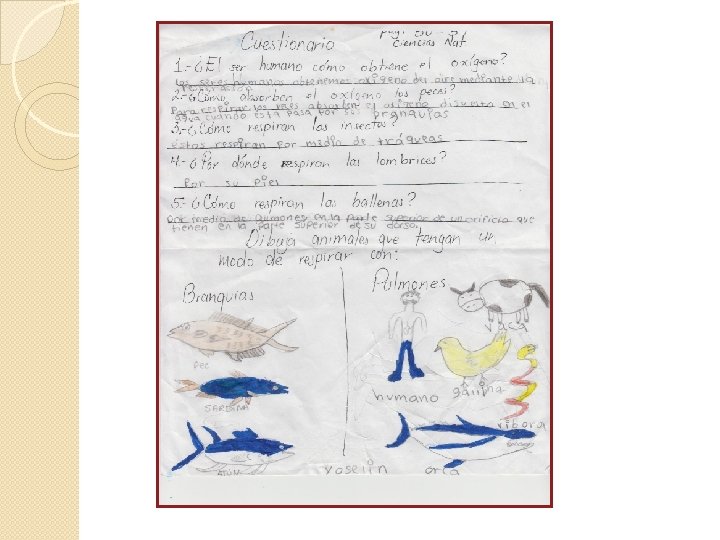 Cuestionario
Pag: 50 y 51
Ciencias Nat
1.- ¿El ser humano cómo obtiene el oxígeno?
Los seres humanos obtenemos oxigeno del aire mediante la
respiración
2.- ¿Cómo absorben el oxígeno los peces?
Para respirar los peces absorben el oxigeno disuelto en el
agua cuando esta pasa por sus branquias
3.- ¿Cómo respiran los insectos?
estos respiran por medio de tráqueas
4.- ¿Por dónde respiran las lombrices?
Por su piel
5.- ¿Cómo respiran las ballenas?
por medio de pulmones en la parte superior de un orificio que
tienen en la parte superior de su dorso.
Dibuja animales que tengan un
modo de respirar con:
Branquias
Pulmones
vaca
Pec
humano
gaiina
SARDINA
vibora
ATUN
yoselin
orca